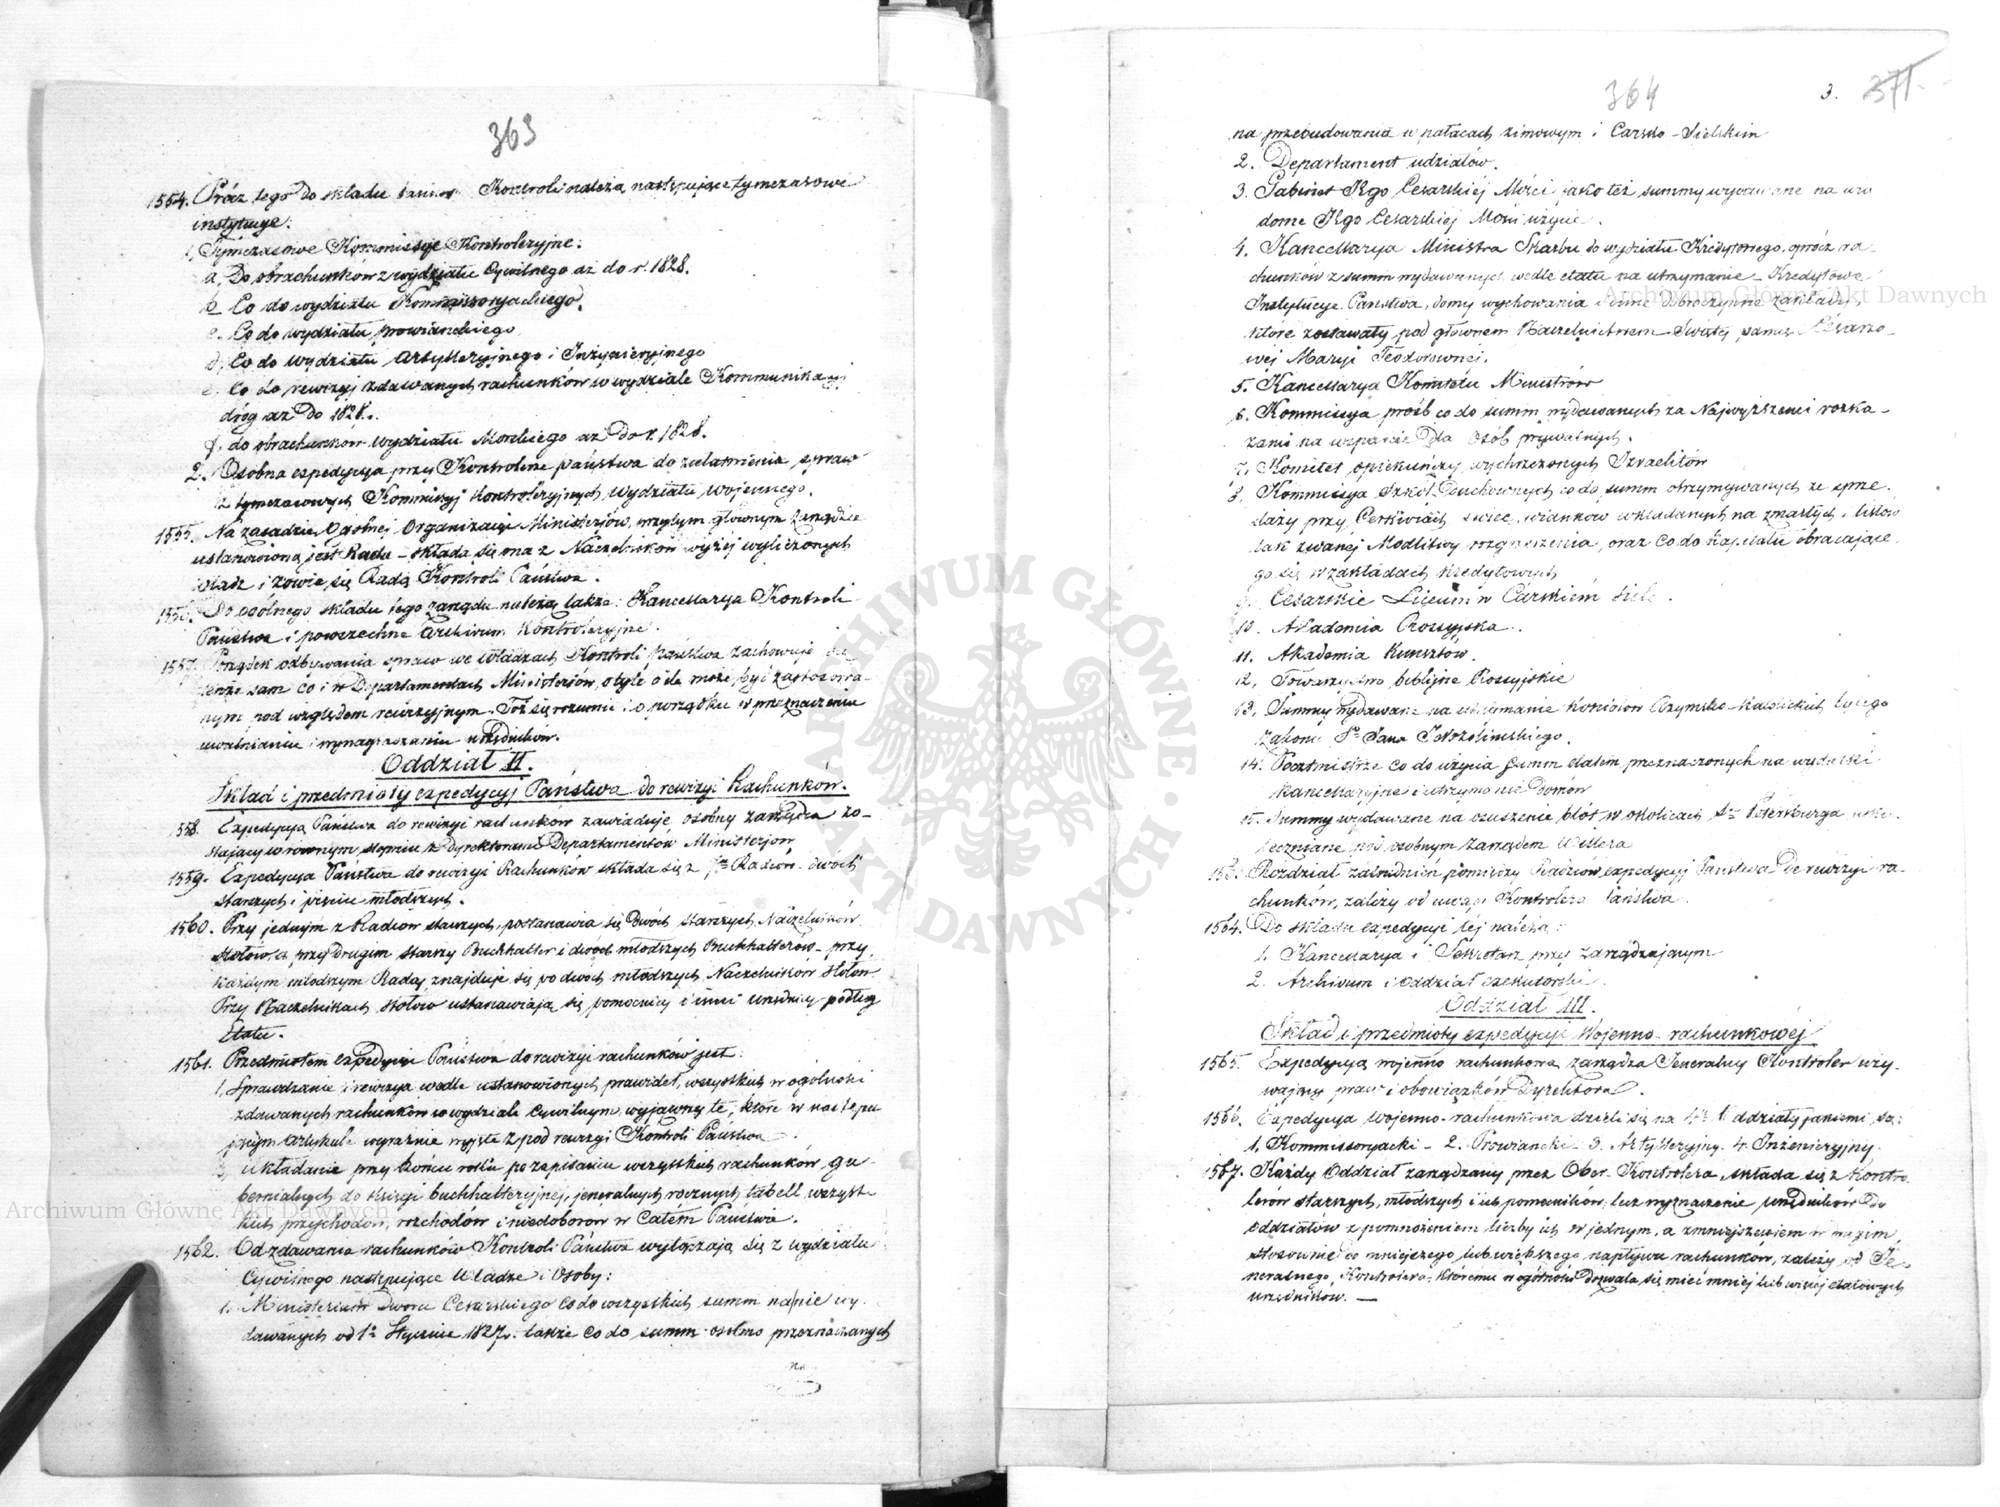 363
1554. Prócz tego do składu Kontroli należą następujące tymczasowe
instytucye:
1, Tymczasowe Kommissye Kontroleryjne:
a, Do obrachunków z wydziału Cywilnego aż do r. 1828.
b Co do wydziału Kommissoryackiego.
c. Co do wydziału prowianckiego
d, Co do wydziału Artylleryjnego i Inżynieryjnego
e. Co do rewizyj zdawanych rachunków w wydziale Kommunikacyi
dróg aż do 1828.
f. do obrachunków wydziału Morskiego aż do r. 1828.
2. Osobna expedycya przy Kontrolerze państwa do załatwienia spraw
z tymczasowych Kommissyj Kontroleryjnych, wydziału wojennego.
1555. Na zasadzie ogólnej organizacyi Ministeriów, przy tym głównym zarządzie
ustanowioną jest Rada – składa się ona z Naczelników wyżej wyliczonych
władz i zowie się Radą Kontroli Państwa.
1556. Do ogólnego składu tego zarządu należą także: Kancellarya Kontroli
Państwa i powszechne archiwum Kontroleryjne.
1557. Porządek odbywania spraw we władzach Kontroli Państwa zachowuje się
tenże sam co i w Departamentach Ministeriów, o tyle o ile może być zastosowa-
nym pod względem rewizyjnym. Toż się rozumie i o porządku w przeznaczeniu
uwalnianiu i wynagradzaniu urzędników.
Oddział II.
Skład i przedmioty expedycyj Państwa do rewizyi Rachunków.
1558. Expedycyą Państwa do rewizyi rachunków zawiaduje osobny zarządca zo-
stający w równym stopniu z Dyrektorami Departamentów Ministerjów
1559. Expedycya Państwa do rewizyi Rachunków składa się z 7miu Radców dwóch
starszych i pięciu młodszych.
1560. Przy jednym z Radców starszych, postanawia się dwóch starszych Naczelników
stołów a przy drugim starszy Buchhalter i dwóch młodszych Buchhalterów – przy
każdym młodszym Radcy znajduje się po dwóch młodszych Naczelników stołów
Przy Naczelnikach stołów ustanawiają się pomocnicy i inni urzędnicy podług
Etatu.
1561. Przedmiotem expedycyi Państwa do rewizyi rachunków jest:
1, Sprawdzanie i rewizya wedle ustanowionych prawideł, wszystkich w ogólności
zdawanych rachunków w wydziale cywilnym, wyjąwszy te, które w następu
jącym artykule wyraźnie wyjęte z pod rewizyi Kontroli Państwa
2, układanie przy końcu roku po zapisaniu wszystkich rachunków gu-
bernialnych do księgi buchhalteryjnej, jeneralnych rocznych tabell wszyst-
kich przychodów, rozchodów i niedoborów w całém Państwie.
1562. Od zdawania rachunków Kontroli Państwa wyłączają się z wydziału
Cywilnego następujące Władze i Osoby:
1. Ministerium Dworu Cesarskiego co do wszystkich summ na nie wy-
dawanych od 1o Stycznia 1827r. także co do summ osobno przeznaczonych
na
364
3. 371.
na przebudowania w pałacach zimowym i Carsko-Sielskim
2. Departament udziałów.
3. Gabinet Jego Cesarskiej Mości jako też summy wydawane na wia
dome Jego Cesarskiej Mości użycie.
4. Kancellarya Ministra Skarbu do wydziału Kredytowego, oprócz ra-
chunków z summ wydawanych wedle etatu na utrzymanie – Kredytowe
Instytucye Państwa, domy wychowania i inne dobroczynne zakłady,
które zostawały pod głównem Naczelnictwem Swiętej pamięci Cesarzo-
wéj Maryi Teodorownéj.
5. Kancellarya Komitetu Ministrów
6. Kommissya próśb co do summ wydawanych za Najwyższemi rozka-
zami na wsparcie dla osób prywatnych.
7. Komitet opiekuńczy wychrzczonych Izraelitów
8. Kommissya Szkół Duchownych co do summ otrzymywanych ze sprze-
daży przy Cerkwiach swiec, wianków wkładanych na zmarłych i listów
tak zwanéj Modlitwy rozgrzeszenia, oraz co do kapitału obracające-
go się w zakładach kredytowych
9. Cesarskie Liceum w Carskiém Siele.
10. Akademia Rossyjska.
11. Akademia Kunsztów.
12. Towarzystwo biblijne Rossyjskie
13. Summy wydawane na utrzymanie kościołów Rzymsko-Katolickich byłego
Zakonu Sgo Jana Jerozolimskiego.
14. Pocztmistrze co do użycia summ etatem przeznaczonych na wydatki
Kancellaryjne i utrzymanie Domów
15. Summy wydawane na osuszenie błót w okolicach St Petersburga usku-
teczniane pod osobnym zarządem Willera
1563. Rozdział zatrudnień pomiędzy Radców expedycyj Państwa do rewizyi ra-
chunków, zależy od uwagi Kontrolera Państwa.
1564. Do składu expedycyi téj należą:
1. Kancellarya i Sekretarz przy zarządzającym
2. Archiwum i oddział exekutorski.
Oddział III.
Skład i przedmioty expedycyi Wojenno-rachunkowéj
1565. Expedycyą wojenno rachunkową zarządza Jeneralny Kontroler uży-
wający praw i obowiązków Dyrektora.
1566. Expedycya wojenno-rachunkowa dzieli się na 4ry Oddziały jakiemi są:
1. Kommissoryacki – 2. Prowiancki – 3. Artylleryjny. 4. Inżenieryjny.
1567. Każdy Oddział zarządzany przez Ober-Kontrolera, składa się z Kontro-
lerów starszych, młodszych i ich pomocników, lecz wyznaczenie urzędników do
oddziałów z pomnożeniem liczby ich w jednym, a zmniejszeniem w drugim,
stosownie do mniejszego lub większego napływu rachunków, zależy od Je-
neralnego Kontrolera, któremu w ogólności dozwala się mieć mniej lub więcej etatowych
urzędników. —
Archiwum Główne Akt Dawnych
Archiwum Główne Akt Dawnych
ARCHIWUM GŁÓWNE AKT DAWNYCH